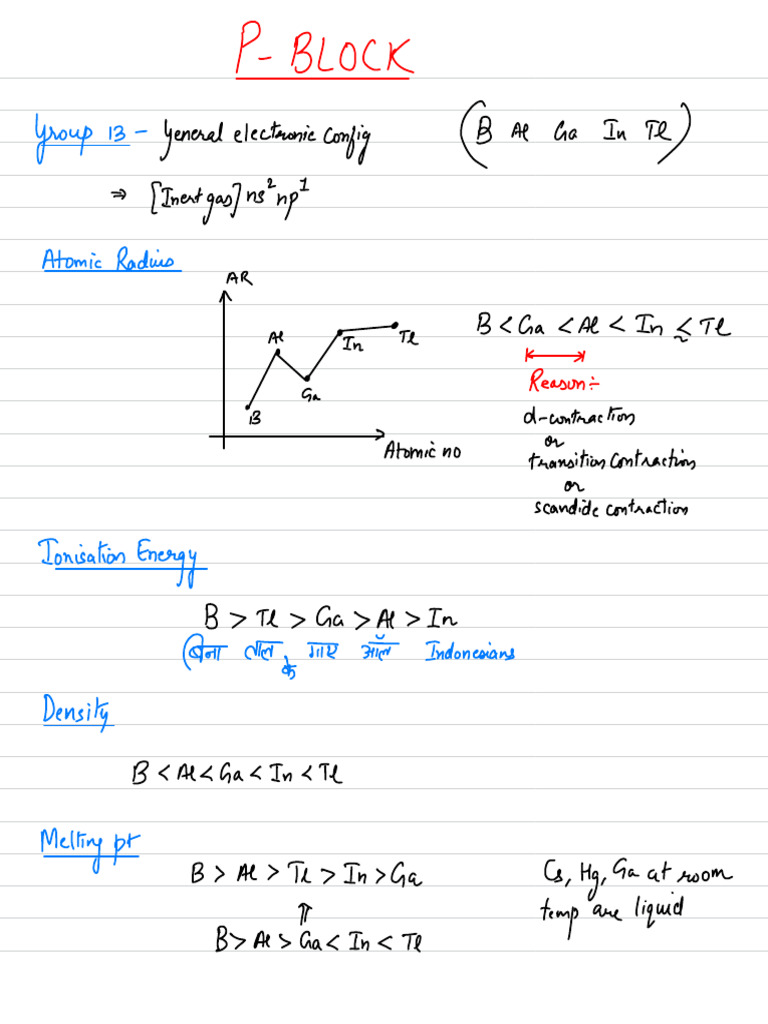 P-BLOCK
Group 13 - General electronic config (B Al Ga In Tl)
⇒ [Inert gas] ns² np¹
Atomic Radius
AR
Al
In
Tl
Ga
B
Atomic no
B < Ga < Al < In ≤ Tl
Reason:-
d-contraction
or
transition contraction
or
scandide contraction
Ionisation Energy
B > Tl > Ga > Al > In
(बिना ताल के गाए ऑल Indonesians
Density
B < Al < Ga < In < Tl
Melting pt
B > Al > Tl > In > Ga
⇑
B > Al > Ga < In < Tl
Cs, Hg, Ga at room
temp are liquid